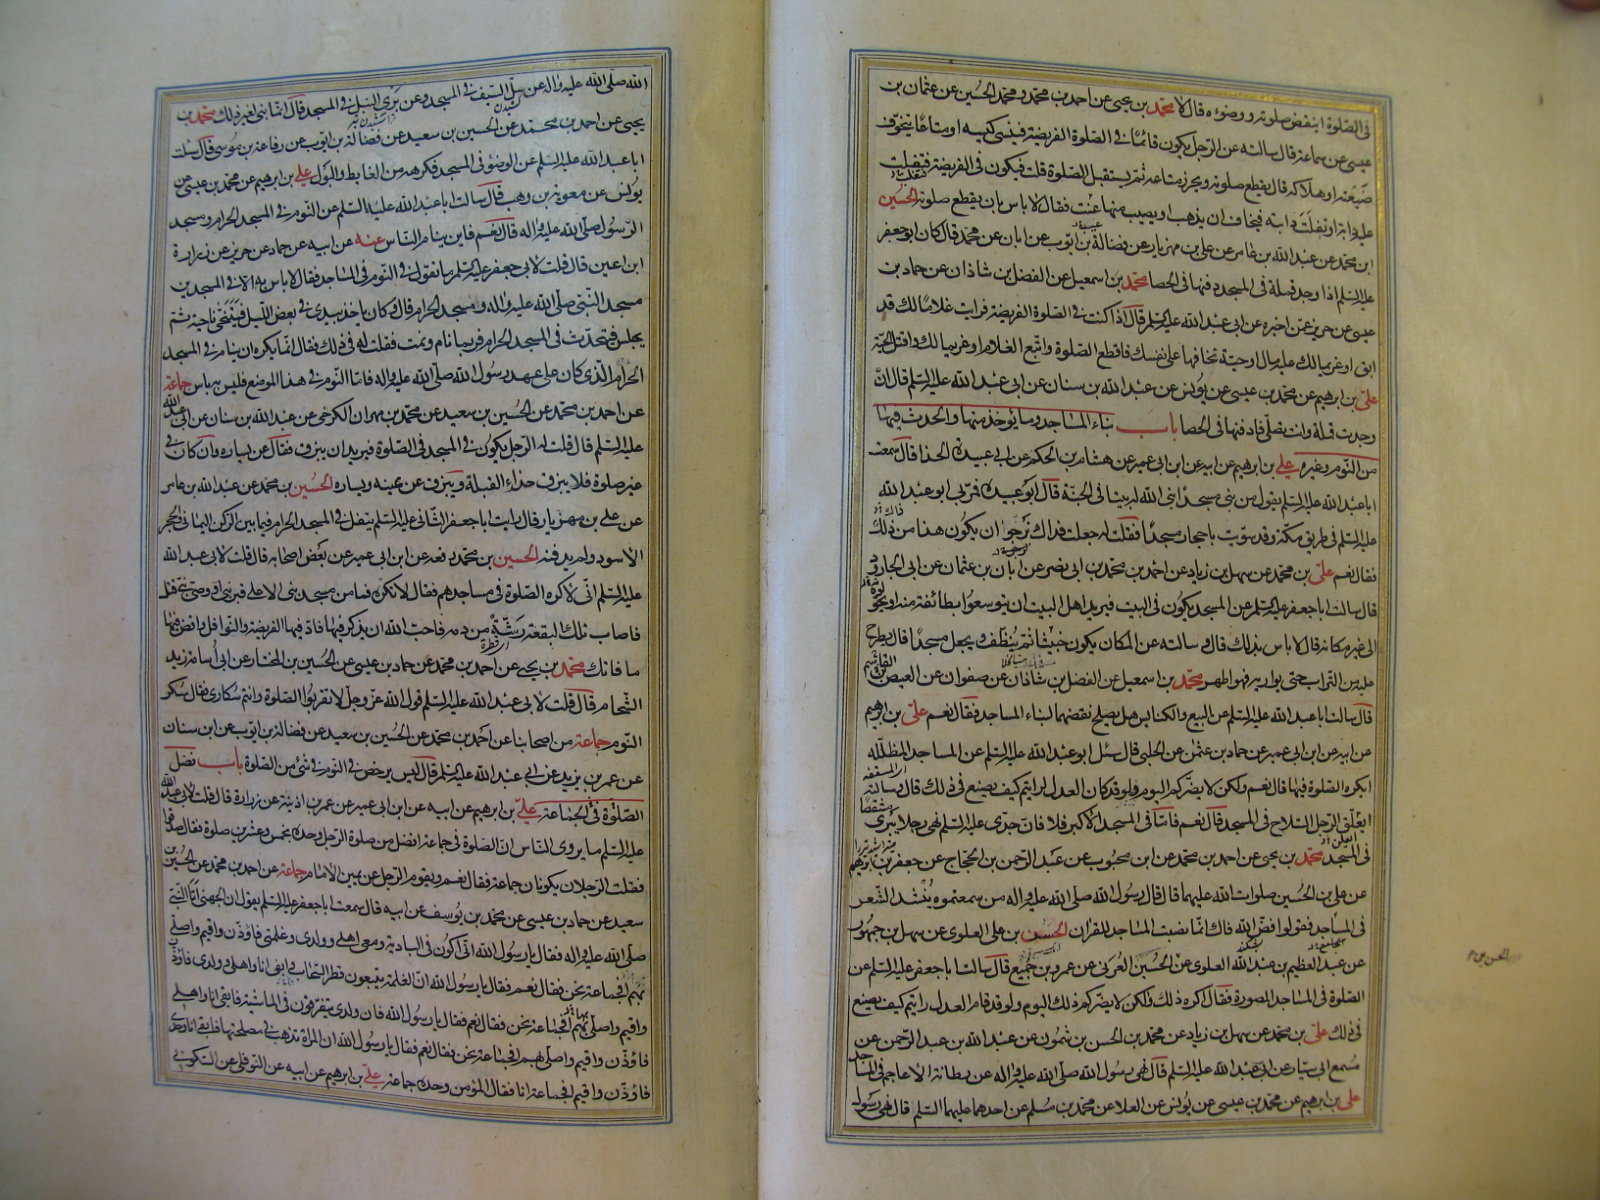 فى الصلوة اينقض صلوته ووضوءه قال لا محمد بن يحيى عن احمد بن محمد ومحمد الحسين عن عثمان بن
عيسى عن سماعة قال سالته عن الرجل يكون قائمًا فى الصلوة الفريضة فينسى كيسه او متاعًا يتخوف
ضيعته او هلاكه قال يقطع صلوته ويحرز متاعه ثم يستقبل الصلوة قلت فيكون فى الفريضة فتفلت
عليه دابة او تفلت دابته فيخاف ان يذهب او يصيب منها عنت فقال لا باس بان يقطع صلوته الحسين
ابن محمد عن عبد الله بن عامر عن على بن مهزيار عن فضالة بن ايوب عن ابان عن محمد قال كان ابو جعفر
عليه السلم اذا وجد قملة فى المسجد دفنها فى الحصا محمد بن اسمعيل عن الفضل بن شاذان عن حماد بن
عيسى عن حريز عمن اخبره عن ابى عبد الله عليه السلم قال اذا كنت فى الصلوة الفريضة فرايت غلامًا لك قد
ابق او غريمًا لك عليه مال او حية تخافها على نفسك فاقطع الصلوة واتبع الغلام او غريما لك واقتل الحية
على بن ابرهيم عن محمد بن عيسى عن يونس عن عبد الله بن سنان عن ابى عبد الله عليه السلم قال ان
وجدت قملة وانت تصلى فادفنها فى الحصا باب بناء المساجد وما يؤخذ منها والحدث فيها
من النوم وغيره على بن ابرهيم عن ابيه عن ابن ابى عمير عن هشام بن الحكم عن ابى عبيدة الحذا قال سمعت
ابا عبد الله عليه السلم يقول من بنى مسجدًا بنى الله له بيتا فى الجنة قال ابو عبيدة فمر بى ابو عبد الله
عليه السلم فى طريق مكة وقد سويت باحجار مسجدًا فقلت له جعلت فداك نرجوا ان يكون هذا من ذلك
فقال نعم على بن محمد عن سهل بن زياد عن احمد بن محمد بن ابى نصر عن ابان بن عثمان عن ابى الجارود
قال سالت ابا جعفر عليه السلم عن المسجد يكون فى البيت فيريد اهل البيت ان يتوسعوا بطائفة منه او يحولوه
الى غير مكانه قال لا باس بذلك قال وسالته عن المكان يكون خبيثا ثم ينظف ويجعل مسجدًا قال يطرح
عليه من التراب حتى يواريه فهو اطهر محمد بن اسمعيل عن الفضل بن شاذان عن صفوان عن العيص بن القاسم
قال سالت ابا عبد الله عليه السلم عن البيع والكنايس هل يصلح نقضهما لبناء المساجد فقال نعم على بن ابرهيم
عن ابيه عن ابن ابى عمير عن حماد بن عثمن عن الحلبى قال سئل ابو عبد الله عليه السلم عن المساجد المظللة
ايكره الصلوة فيها قال نعم ولكن لا يضركم اليوم ولو قد كان العدل لرايتم كيف يصنع فى ذلك قال وسالته
ايعلق الرجل السلاح فى المسجد قال نعم فاما فى المسجد الاكبر فلا فان جدى عليه السلم نهى رجلا يبرى مشقصا
فى المسجد محمد بن يحيى عن احمد بن محمد عن ابن محبوب عن عبد الرحمن بن الحجاج عن جعفر بن ابرهيم
عن على بن الحسين صلوات الله عليهما قال قال رسول الله صلى الله عليه واله من سمعتموه ينشد الشعر
فى المساجد فقولوا فض الله فاك انما نصبت المساجد للقران الحسين بن على العلوى عن سهل بن جمهور
عن عبد العظيم بن عبد الله العلوى عن الحسين العرنى عن عمرو بن جميع قال سالت ابا جعفر عليه السلم عن
الصلوة فى المساجد المصورة فقال اكره ذلك ولكن لا يضركم ذلك اليوم ولو قد قام العدل رايتم كيف يصنع
فى ذلك على بن محمد عن سهل بن زياد عن محمد بن الحسن بن شمون عن عبد الله بن عبد الرحمن عن
مسمع ابى سيار عن ابى عبد الله عليه السلم قال نهى رسول الله صلى الله عليه واله عن رطانة الاعاجم فى المساجد
على بن ابرهيم عن محمد بن عيسى عن يونس عن العلا عن محمد بن مسلم عن احدهما عليهما السلم قال نهى رسول
الله صلى الله عليه واله عن سل السيف فى المسجد وعن برى النبل فى المسجد قال انما بنى لغير ذلك محمد بن
يحيى عن احمد بن محمد عن الحسين بن سعيد عن فضالة بن ايوب عن رفاعة بن موسى قال سئلت
ابا عبد الله عليه السلم عن الوضوء فى المسجد فكرهه من الغايط والبول على بن ابرهيم عن محمد بن عيسى عن
يونس عن معوية بن وهب قال سالت ابا عبد الله عليه السلم عن النوم فى المسجد الحرام ومسجد
الرسول صلى الله عليه واله قال نعم فاين ينام الناس عنه عن ابيه عن حماد عن حريز عن زرارة
ابن اعين قال قلت لابى جعفر عليه السلم ما تقول فى النوم فى المساجد فقال لا باس به الا فى المسجدين
مسجد النبى صلى الله عليه واله ومسجد الحرام قال وكان ياخذ بيدى فى بعض الليل فيتنحى ناحية ثم
يجلس فيتحدث فى المسجد الحرام فربما نام ونمت فقلت له فى ذلك فقال انما يكره ان ينام فى المسجد
الحرام الذى كان على عهد رسول الله صلى الله عليه واله فاما النوم فى هذا الموضع فليس به باس جماعة
عن احمد بن محمد عن الحسين بن سعيد عن محمد بن مهران الكرخى عن عبد الله بن سنان عن ابى عبد الله
عليه السلم قال قلت له الرجل يكون فى المسجد فى الصلوة فيريد ان يبزق فقال عن يساره وان كان فى
غير صلوة فلا يبزق حذاء القبلة ويبزق عن يمينه ويساره الحسين بن محمد عن عبد الله بن عامر
عن على بن مهزيار قال رايت ابا جعفر الثانى عليه السلم يتفل فى المسجد الحرام فيما بين الركن اليمانى والحجر
الاسود ولم يدفنه الحسين بن محمد رفعه عن ابن ابى عمير عن بعض اصحابه قال قلت لابى عبد الله
عليه السلم انى لاكره الصلوة فى مساجدهم فقال لا تكره فما من مسجد بنى الا على قبر نبى او وصى نبى قتل
فاصاب تلك البقعة رشة من دمه فاحب الله ان يذكر فيها فاد فيها الفريضة والنوافل واقض فيها
ما فاتك محمد بن يحيى عن احمد بن محمد عن حماد بن عيسى عن الحسين بن المختار عن ابى اسامة زيد
الشحام قال قلت لابى عبد الله عليه السلم قول الله عز وجل لا تقربوا الصلوة وانتم سكارى فقال سكر
النوم جماعة من اصحابنا عن احمد بن محمد عن الحسين بن سعيد عن فضالة بن ايوب عن ابن سنان
عن عمر بن يزيد عن ابى عبد الله عليه السلم قال ليس يرخص فى النوم فى شئ من الصلوة باب فضل
الصلوة فى الجماعة على بن ابرهيم عن ابيه عن ابن ابى عمير عن عمر بن اذينة عن زرارة قال قلت لابى عبد الله
عليه السلم ما يروى الناس ان الصلوة فى جماعة افضل من صلوة الرجل وحده بخمس وعشرين صلوة فقال صدقوا
فقلت الرجلان يكونان جماعة فقال نعم ويقوم الرجل عن يمين الامام جماعة عن احمد بن محمد عن الحسين بن
سعيد عن حماد بن عيسى عن محمد بن يوسف عن ابيه قال سمعت ابا جعفر عليه السلم يقول ان الجهنى اتى النبى
صلى الله عليه واله فقال يا رسول الله انى اكون فى البادية ومعى اهلى وولدى وغلمتى فاؤذن واقيم واصلى
بهم افجماعة نحن فقال نعم فقال يا رسول الله ان الغلمة يتبعون قطر السحاب وابقى انا واهلى وولدى فاؤذن
واقيم واصلى بهم افجماعة نحن فقال نعم فقال يا رسول الله فان ولدى يتفرقون فى الماشية فابقى انا واهلى
فاؤذن واقيم واصلى بهم افجماعة نحن فقال نعم فقال يا رسول الله ان المراة تذهب فى مصلحتها فابقى انا وحدى
فاؤذن واقيم افجماعة انا فقال المؤمن وحده جماعة على بن ابرهيم عن ابيه عن النوفلى عن السكونى